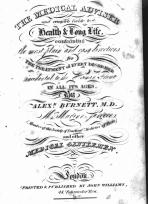 THE MEDICAL ADVISER
and complete Guide to
Health & Long Life,
containing
the most plain and easy directions
for
THE TREATMENT of EVERY DISORDER
incidental to the Human Frame
IN ALL ITS AGES.
By
ALEXR. BURNETT, M.D.
Member of the
and other
MEDICAL GENTLEMEN.
London
PRINTED & PUBLISHED BY JOHN WILLIAMS,
44, Paternoster Row.